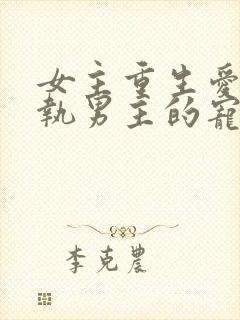 女主重生愛
執男主的寵
李克農